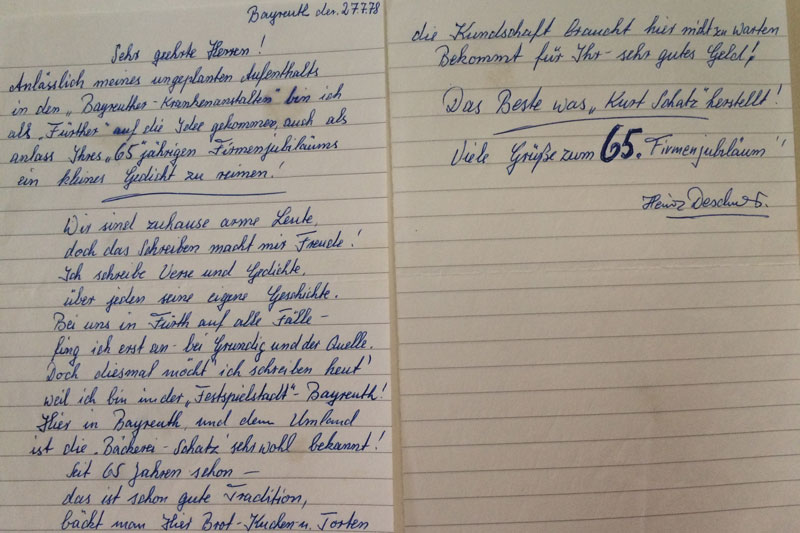 Bayreuth den. 27.7.78
Sehr geehrte Herren!
Anlässlich meines ungeplanten Aufenthalts
in den "Bayreuther-Krankenanstalten" bin ich
als "Fürther" auf die Idee gekommen, auch als
anlass Ihres "65" jährigen Firmenjubiläums
ein kleines Gedicht zu reimen!
Wir sind zuhause arme Leute
doch das Schreiben macht mir Freude!
Ich schreibe Verse und Gedichte,
über jeden seine eigene Geschichte.
Bei uns in Fürth auf alle Fälle-
fing ich erst an- bei Grundig und der Quelle.
Doch diesmal möcht' ich schreiben heut'
weil ich bin in der "Festspielstadt"- Bayreuth!
Hier in Bayreuth, und dem Umland
ist die "Bäckerei-Schatz" sehr wohl bekannt!
Seit 65 Jahren schon-
das ist schon gute Tradition,
bäckt man Hier Brot-Kuchen u. Torten
die Kundschaft braucht hier nicht zu warten
Bekommt für Ihr- sehr gutes Geld!
Das Beste was "Kurt Schatz" herstellt!
Viele Grüße zum 65. Firmenjubiläum!
Heinz